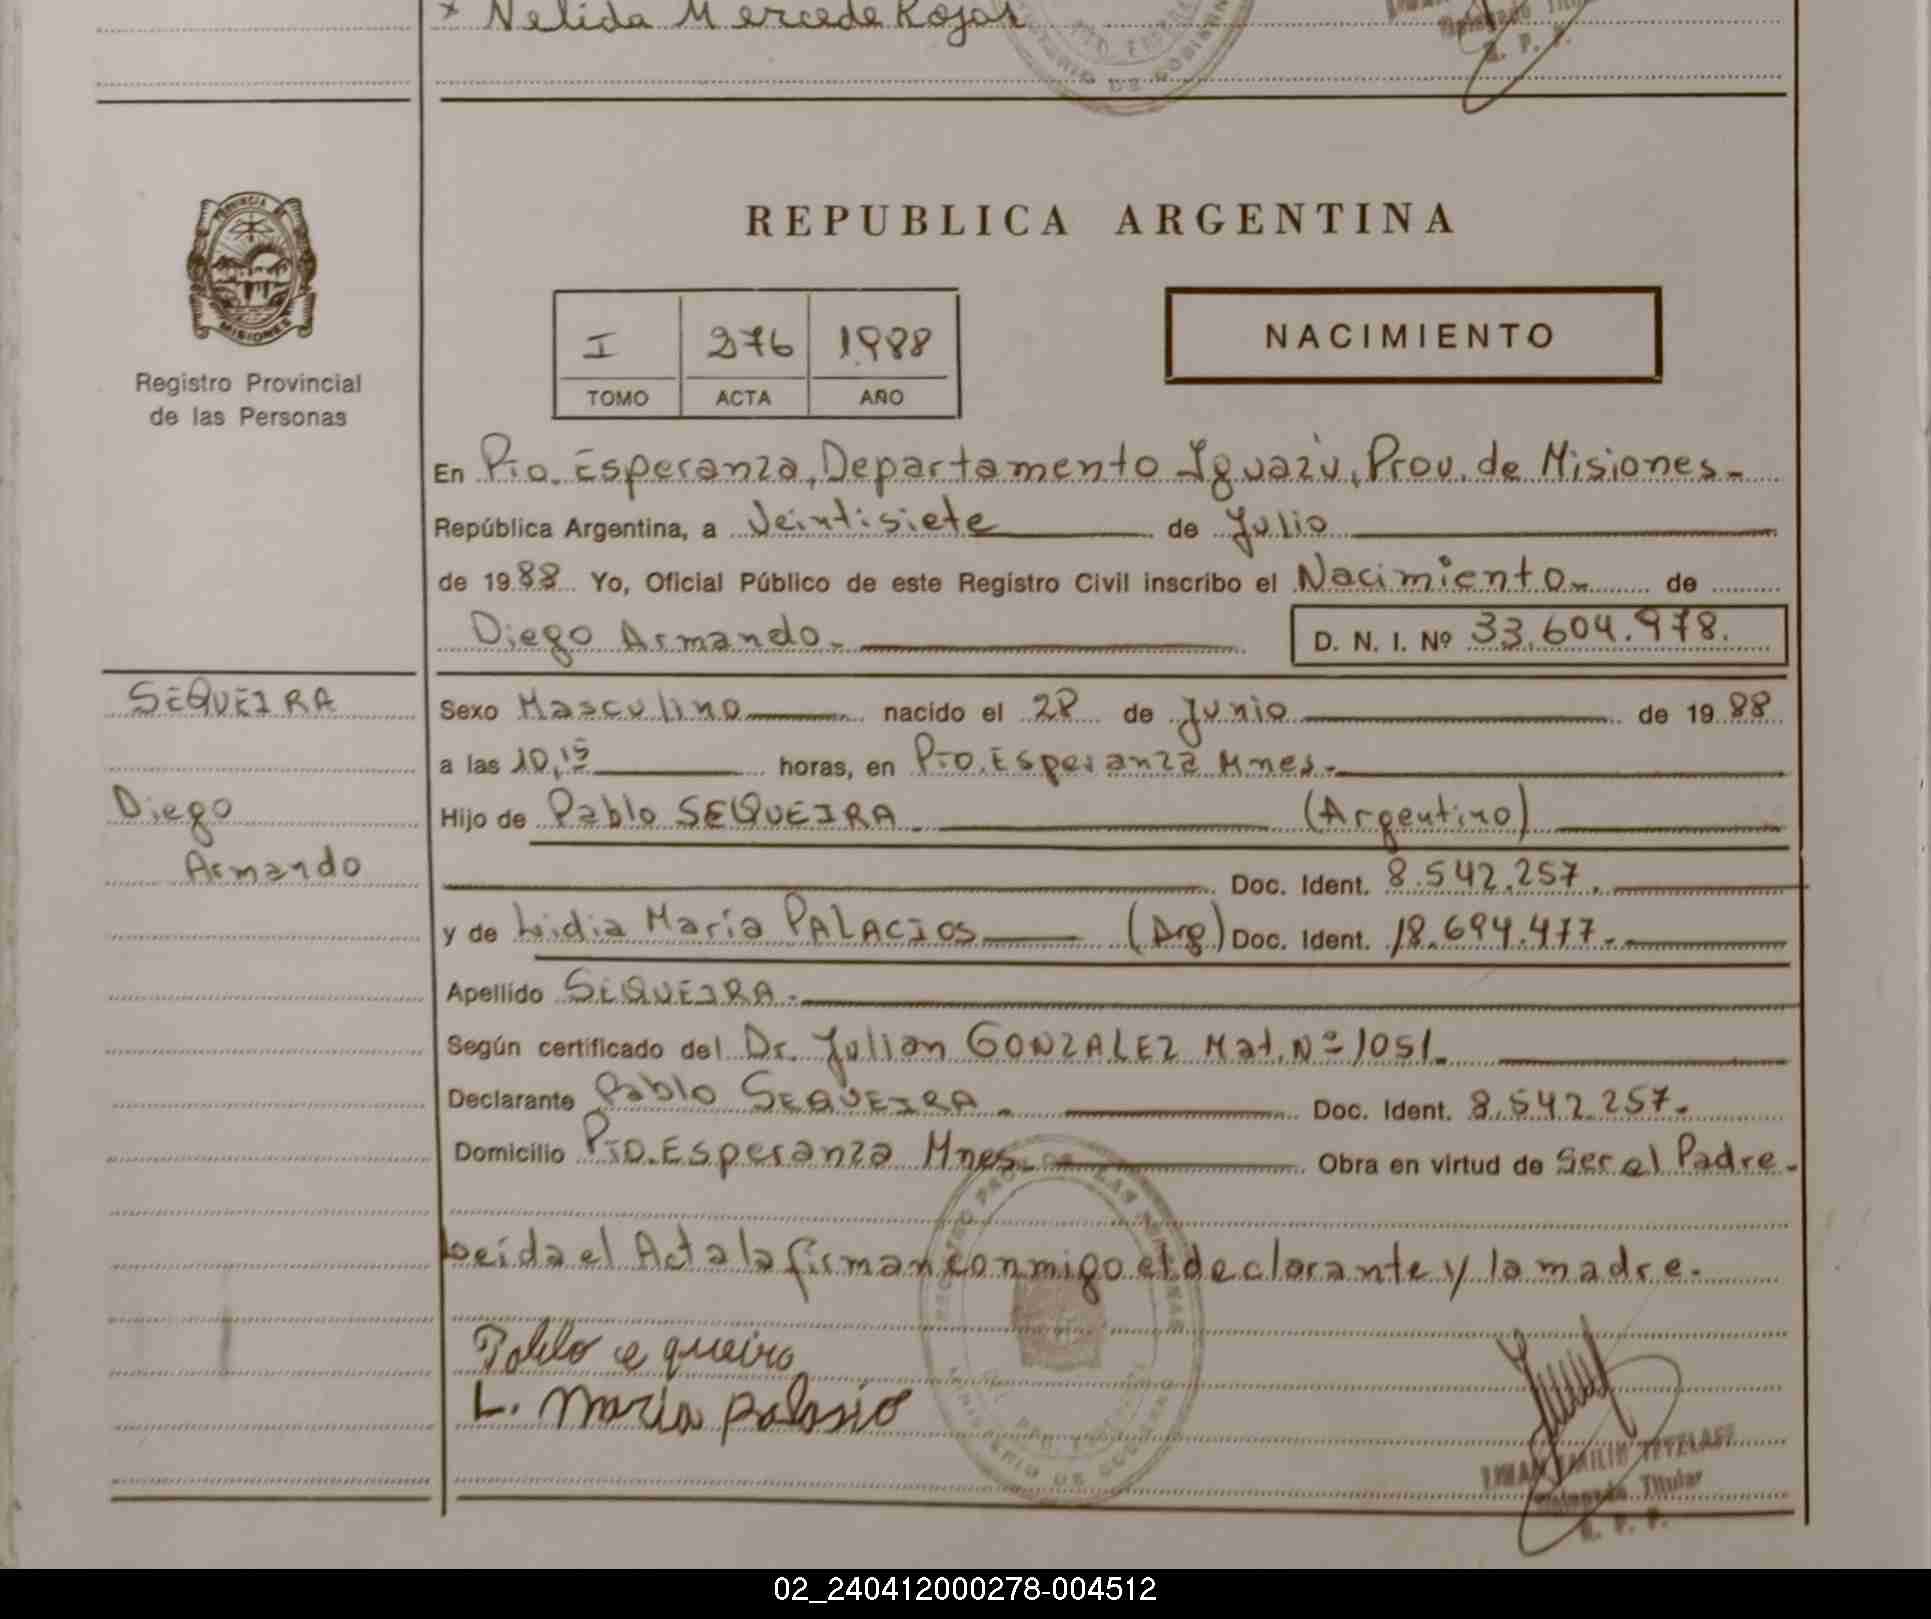 x Nelida Mercede Rojas
R. P. P.
PROVINCIA DE
MISIONES
Registro Provincial
de las Personas
REPUBLICA ARGENTINA
I 276 1988
TOMO ACTA AÑO
NACIMIENTO
En Pto. Esperanza, Departamento Iguazú, Prov. de Misiones.
República Argentina, a Veintisiete de Julio
de 1988 Yo, Oficial Público de este Registro Civil inscribo el Nacimiento de
Diego Armando. D. N. I. Nº 33.604.978.
SEQUEIRA
Diego
Armando
Sexo Masculino nacido el 28 de Junio de 1988
a las 10,15 horas, en Pto. Esperanza Mnes.
Hijo de Pablo SEQUEIRA (Argentino)
Doc. Ident. 8.542.257.
y de Lidia María PALACIOS (Arg) Doc. Ident. 18.694.477.
Apellido SEQUEIRA.
Según certificado del Dr. Julian GONZALEZ Mat. Nº 1051.
Declarante Pablo SEQUEIRA. Doc. Ident. 8.542.257.
Domicilio Pto. Esperanza Mnes. Obra en virtud de Ser el Padre.
Leída el Acta la firman conmigo el declarante y la madre.
Pablo e queira
L. María palasio
MINISTERIO DE GOBIERNO
EMILIO
Titular
R. P. P.
02_240412000278-004512